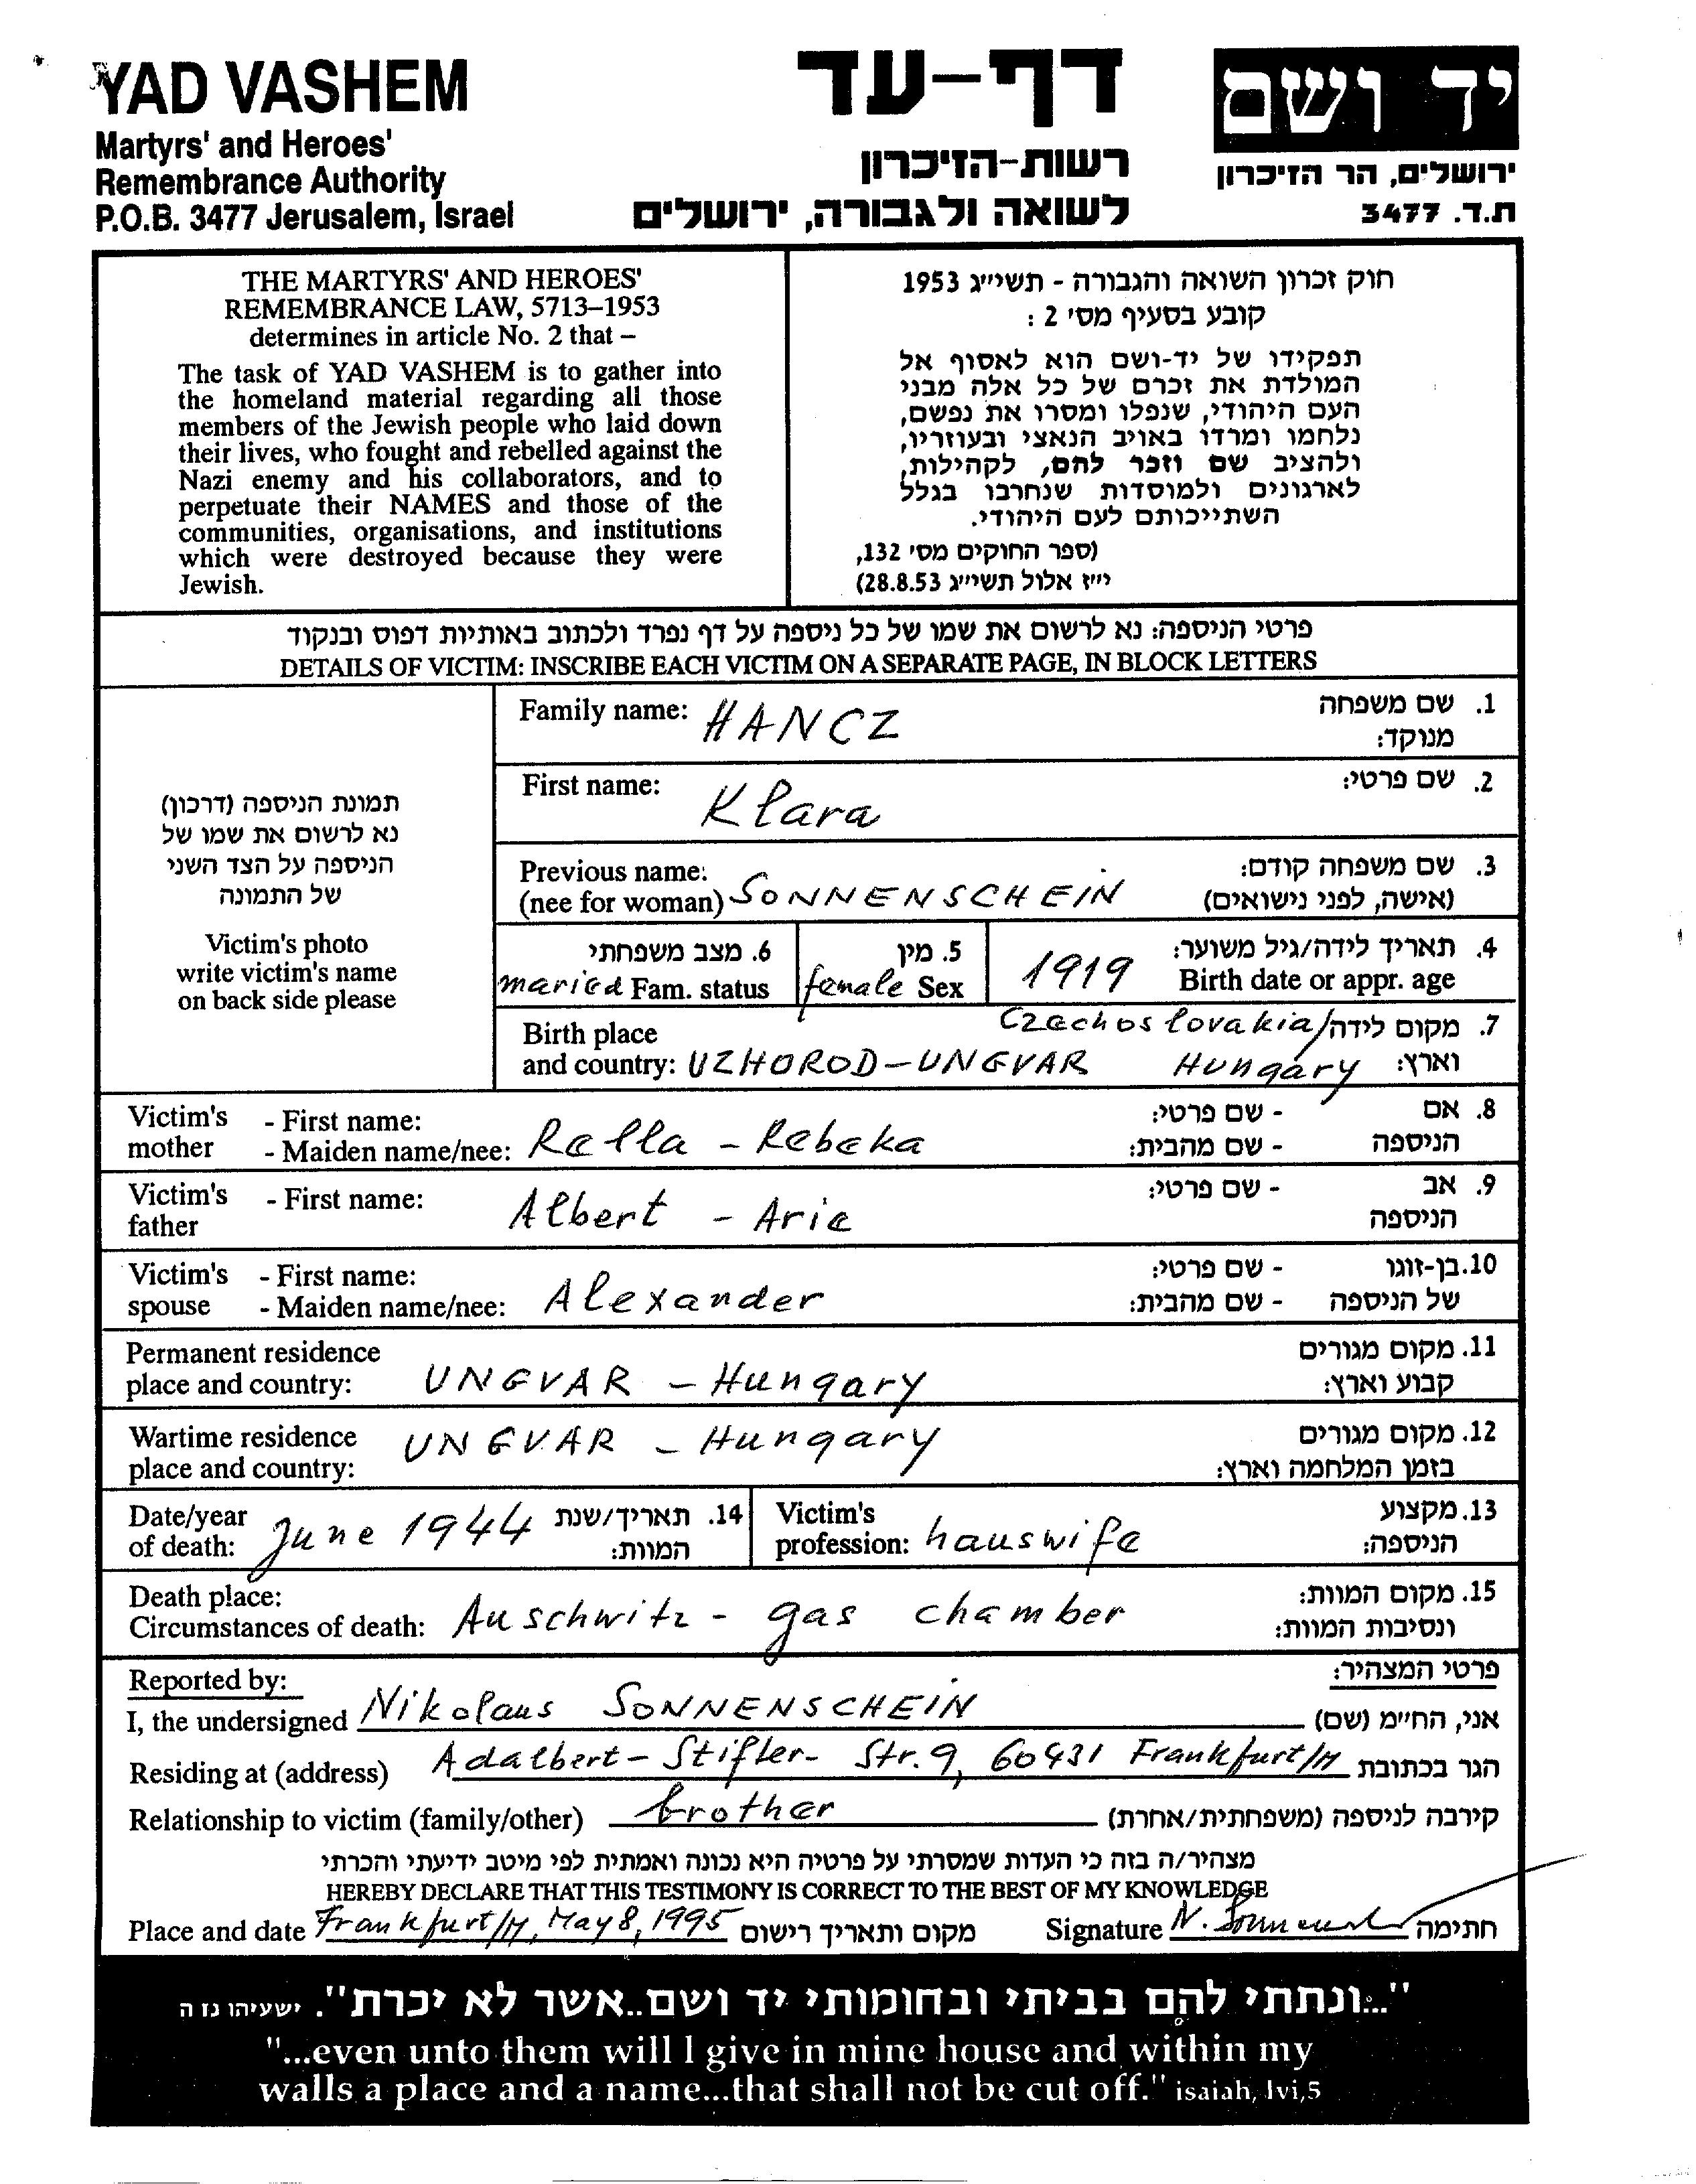 YAD VASHEM
Martyrs' and Heroes'
Remembrance Authority
P.O.B. 3477 Jerusalem, Israel
דף-עד
רשות-הזיכרון
לשואה ולגבורה, ירושלים
יד ושם
ירושלים, הר הזיכרון
ת.ד. 3477
THE MARTYRS' AND HEROES'
REMEMBRANCE LAW, 5713–1953
determines in article No. 2 that –
The task of YAD VASHEM is to gather into
the homeland material regarding all those
members of the Jewish people who laid down
their lives, who fought and rebelled against the
Nazi enemy and his collaborators, and to
perpetuate their NAMES and those of the
communities, organisations, and institutions
which were destroyed because they were
Jewish.
חוק זכרון השואה והגבורה - תשי״ג 1953
קובע בסעיף מס׳ 2 :
תפקידו של יד-ושם הוא לאסוף אל
המולדת את זכרם של כל אלה מבני
העם היהודי, שנפלו ומסרו את נפשם,
נלחמו ומרדו באויב הנאצי ובעוזריו,
ולהציב שם וזכר להם, לקהילות,
לארגונים ולמוסדות שנחרבו בגלל
השתייכותם לעם היהודי.
(ספר החוקים מס׳ 132,
י״ז אלול תשי״ג 28.8.53)
פרטי הניספה: נא לרשום את שמו של כל ניספה על דף נפרד ולכתוב באותיות דפוס ובנקוד
DETAILS OF VICTIM: INSCRIBE EACH VICTIM ON A SEPARATE PAGE, IN BLOCK LETTERS
תמונת הניספה (דרכון)
נא לרשום את שמו של
הניספה על הצד השני
של התמונה
Victim's photo
write victim's name
on back side please
Family name: HANCZ 1. שם משפחה
מנוקד:
First name: Klara 2. שם פרטי:
Previous name: 3. שם משפחה קודם:
(nee for woman) SONNENSCHEIN (אישה, לפני נישואים)
6. מצב משפחתי 5. מין 4. תאריך לידה/גיל משוער:
maried Fam. status female Sex 1919 Birth date or appr. age
Birth place Czechoslovakia/ 7. מקום לידה
and country: UZHOROD-UNGVAR Hungary וארץ:
Victim's - First name: - שם פרטי: 8. אם
mother - Maiden name/nee: Rella - Rebeka - שם מהבית: הניספה
Victim's - First name: Albert - Arie - שם פרטי: 9. אב
father הניספה
Victim's - First name: - שם פרטי: 10. בן-זוגו
spouse - Maiden name/nee: Alexander - שם מהבית: של הניספה
Permanent residence 11. מקום מגורים
place and country: UNGVAR - Hungary קבוע וארץ:
Wartime residence UNGVAR - Hungary 12. מקום מגורים
place and country: בזמן המלחמה וארץ:
Date/year June 1944 14. תאריך/שנת Victim's 13. מקצוע
of death: המוות: profession: hauswife הניספה:
Death place: 15. מקום המוות:
Circumstances of death: Auschwitz - gas chamber ונסיבות המוות:
Reported by: פרטי המצהיר:
I, the undersigned Nikolaus SONNENSCHEIN אני, החי״מ (שם)
Residing at (address) Adalbert-Stifler-Str. 9, 60431 Frankfurt/M הגר בכתובת
Relationship to victim (family/other) brother קירבה לניספה (משפחתית/אחרת)
מצהיר/ה בזה כי העדות שמסרתי על פרטיה היא נכונה ואמתית לפי מיטב ידיעתי והכרתי
HEREBY DECLARE THAT THIS TESTIMONY IS CORRECT TO THE BEST OF MY KNOWLEDGE
Place and date Frankfurt/M, May 8, 1995 מקום ותאריך רישום Signature N. חתימה
"...ונתתי להם בביתי ובחומותי יד ושם..אשר לא יכרת". ישעיהו נז ה
"...even unto them will I give in mine house and within my
walls a place and a name...that shall not be cut off." isaiah, lvi,5